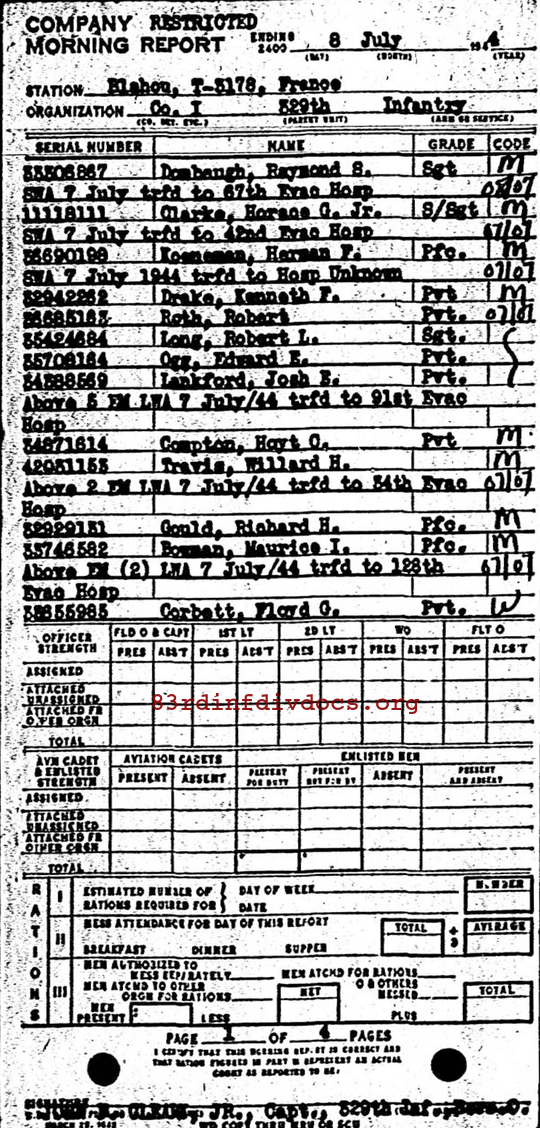 COMPANY RESTRICTED
MORNING REPORT ENDING 2400 8 July 194 4
(DAY) (MONTH) (YEAR)
STATION Blehou, T-3178, France
ORGANIZATION Co. I 329th Infantry
(CO. DET. ETC.) (PARENT UNIT) (ARM OR SERVICE)
SERIAL NUMBER NAME GRADE CODE
Raymond S. Sgt M
SWA 7 July trfd to 67th Evac Hosp 07/07
11118111 Clarke, Horace G. Jr. S/Sgt M
SWA 7 July trfd to 42nd Evac Hosp 07/07
36690198 Herman F. Pfc. M
SWA 7 July 1944 trfd to Hosp Unknown 07/07
32942262 Drake, Kenneth F. Pvt M
Roth, Robert Pvt. 07/07
35424684 Long, Robert L. Sgt.
35708164 Ogg, Edward E. Pvt.
34588569 Lankford, Josh E. Pvt.
Above 5 EM LWA 7 July/44 trfd to 91st Evac
Hosp
34871614 Compton, Hoyt C. Pvt M
42031153 Travis, Willard H. M
Above 2 EM LWA 7 July/44 trfd to 34th Evac 07/07
Hosp
32929131 Gould, Richard H. Pfc. M
33746582 Bowman, Maurice I. Pfc. M
Above EM (2) LWA 7 July/44 trfd to 128th 07/07
Evac Hosp
38655985 Corbett, Floyd G. Pvt. W
OFFICER STRENGTH FLD O & CAPT 1ST LT 2D LT WO FLT O
PRES ABS'T PRES ABS'T PRES ABS'T PRES ABS'T PRES ABS'T
ASSIGNED
ATTACHED UNASSIGNED
ATTACHED FR OTHER ORGN
TOTAL
83rdinfdivdocs.org
AVN CADET & ENLISTED STRENGTH AVIATION CADETS ENLISTED MEN
PRESENT ABSENT PRESENT FOR DUTY PRESENT NOT FOR DY ABSENT PRESENT AND ABSENT
ASSIGNED
ATTACHED UNASSIGNED
ATTACHED FR OTHER ORGN
TOTAL
RATIONS
I ESTIMATED NUMBER OF RATIONS REQUIRED FOR DAY OF WEEK DATE NUMBER
II MESS ATTENDANCE FOR DAY OF THIS REPORT TOTAL ÷ 3 AVERAGE
BREAKFAST DINNER SUPPER
III MEN AUTHORIZED TO MESS SEPARATELY MEN ATCHD FOR RATIONS
MEN ATCHD TO OTHER ORGN FOR RATIONS NET & OTHERS MESSED TOTAL
MEN PRESENT LESS PLUS
PAGE 1 OF 4 PAGES
I CERTIFY THAT THIS MORNING REPORT IS CORRECT AND
THAT RATION FIGURES IN PART III REPRESENT AN ACTUAL
COUNT AS REPORTED TO ME:
SIGNATURE
JR., Capt., 329th Inf., Pers.O.